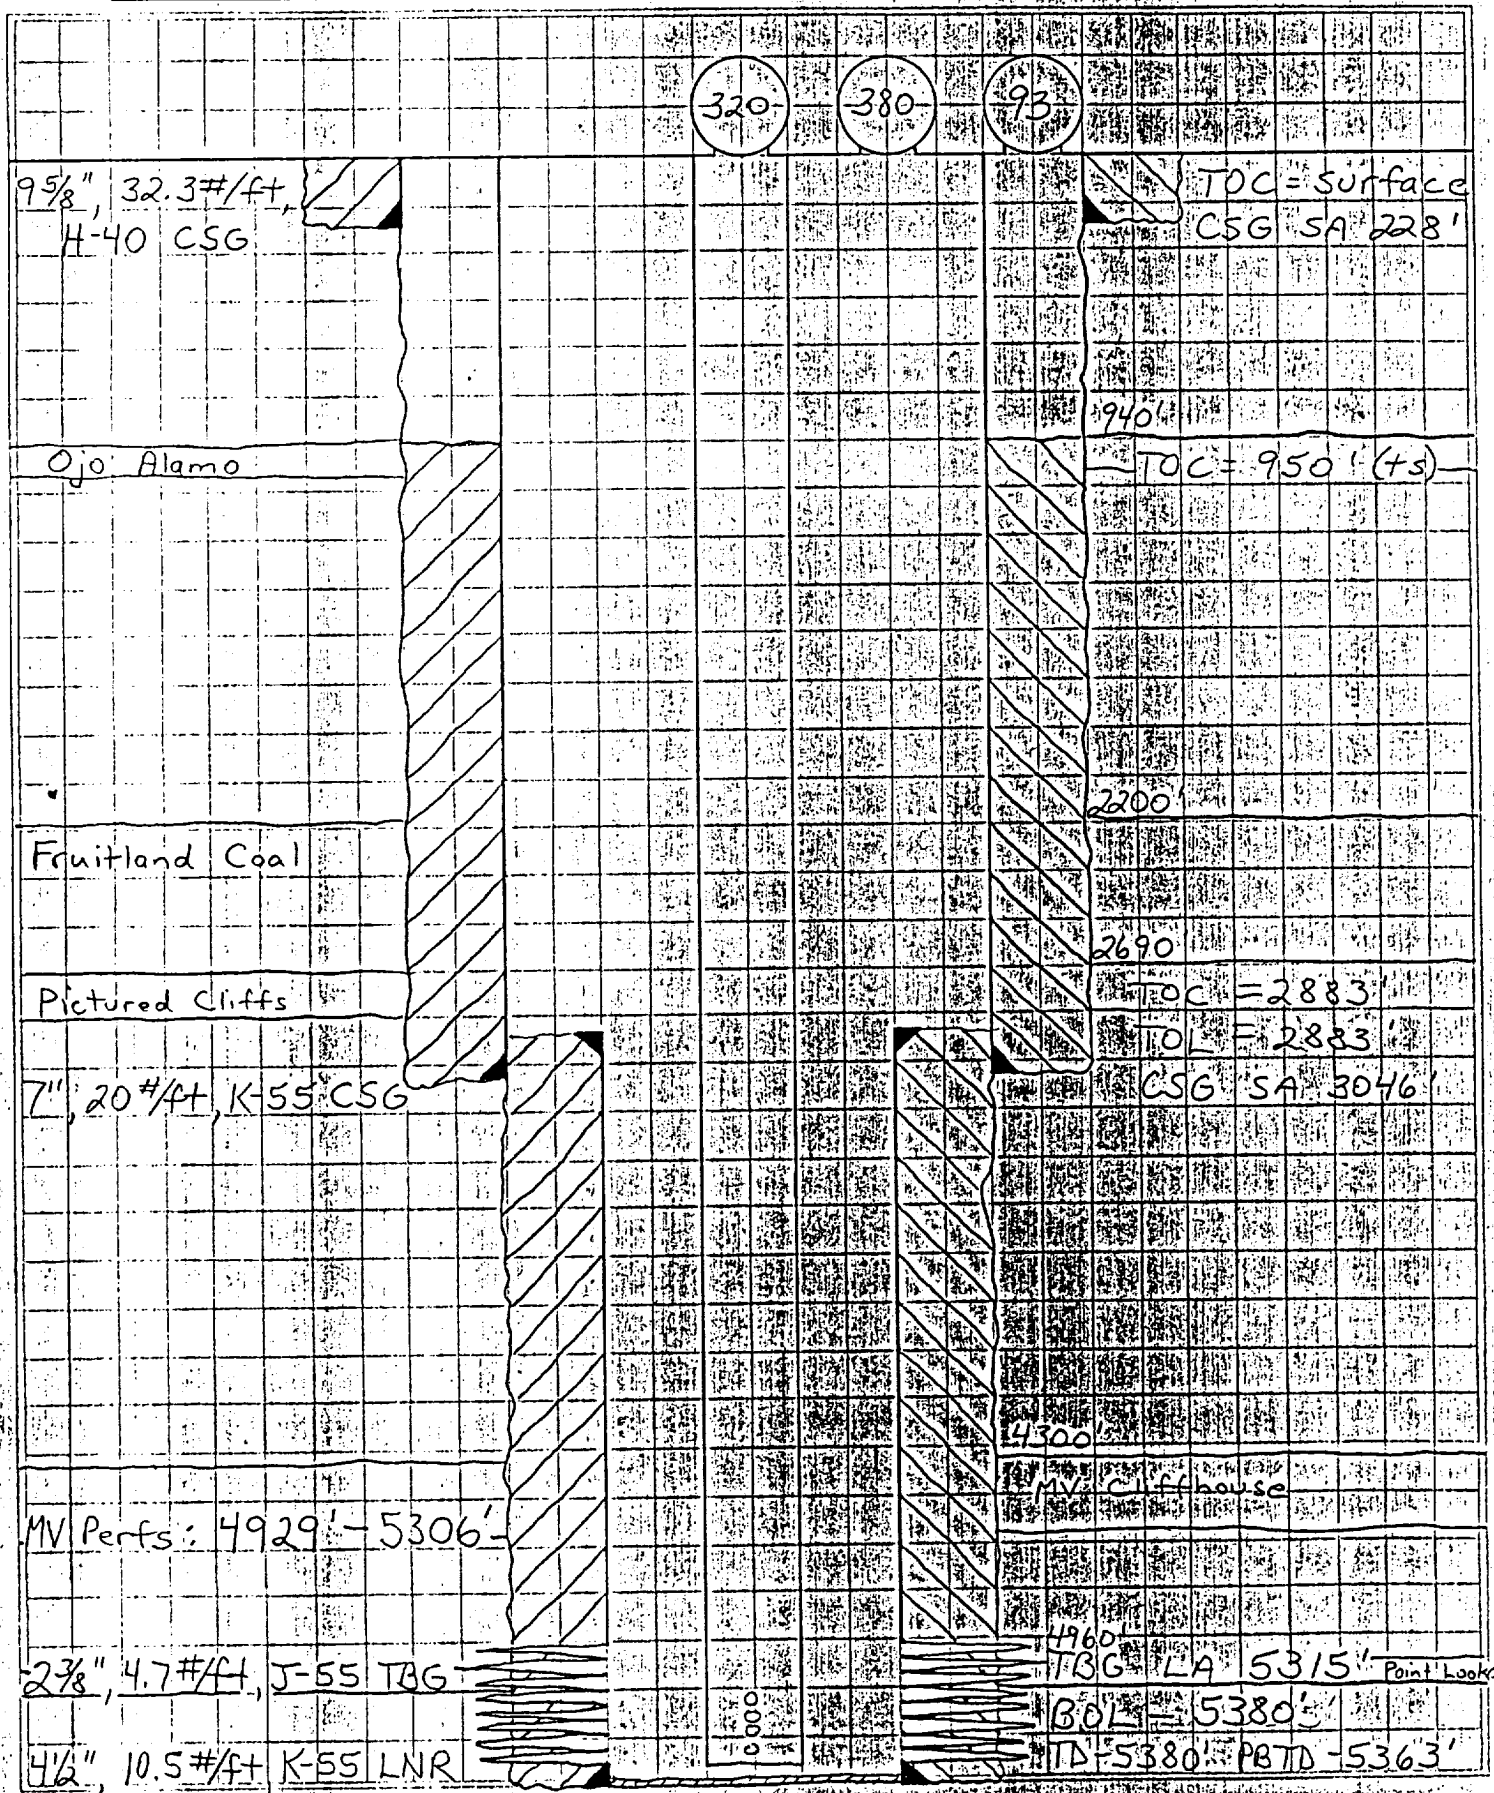 320 380 93
9 5/8", 32.3#/ft,
H-40 CSG
TOC = Surface
CSG SA 228'
940'
Ojo Alamo
TOC = 950' (ts)
2200'
Fruitland Coal
2690
Pictured Cliffs
TOC = 2883'
TOL = 2883'
7", 20#/ft, K-55 CSG
CSG SA 3046'
4300'
MV Cliffhouse
MV Perfs: 4929' - 5306'
4960
2 3/8", 4.7#/ft, J-55 TBG
TBG LA 5315' Point Looko
BOL - 5380'
4 1/2", 10.5#/ft K-55 LNR
TD - 5380' PBTD - 5363'